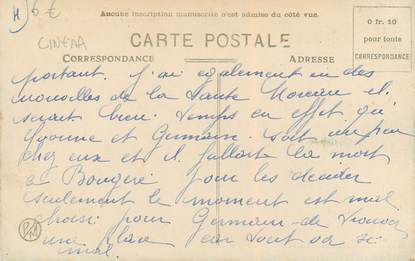 H) 6€
Aucune inscription manuscrite n'est admise du côté vue.
CINEMA
CARTE POSTALE
0 fr. 10
pour toute
CORRESPONDANCE
CORRESPONDANCE
ADRESSE
portant. J'ai également eu des
nouvelles de la Tante Moreau et
serait bien. Temps en effet qu'
Yvonne et Germain soit un peu
chez eux et il fallait la mort
à Bougeré pour les décider
seulement le moment est mal
choisi pour Germain de trouver
une place car tout va si
mal.